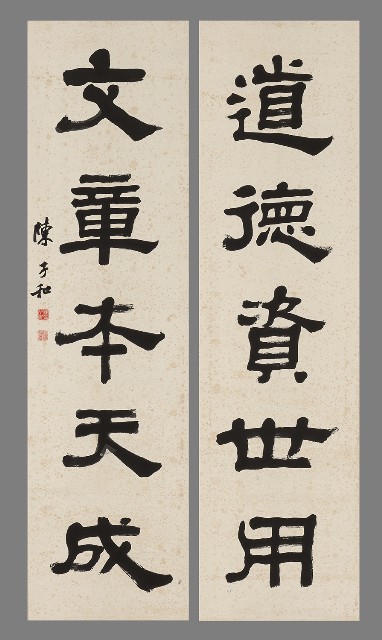 道德資世用
文章本天成
陳子和